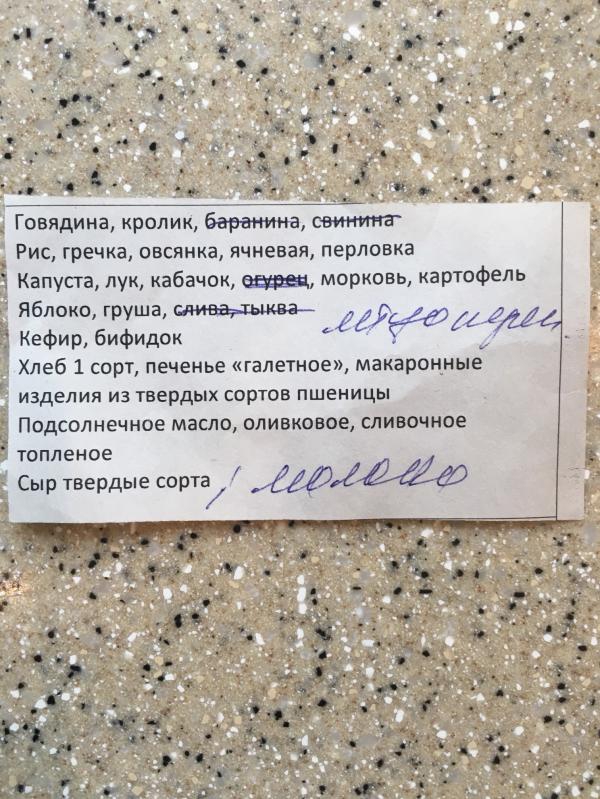 Говядина, кролик, баранина, свинина
Рис, гречка, овсянка, ячневая, перловка
Капуста, лук, кабачок, огурец, морковь, картофель
Яблоко, груша, слива, тыква
Кефир, бифидок
Хлеб 1 сорт, печенье «галетное», макаронные
изделия из твердых сортов пшеницы
Подсолнечное масло, оливковое, сливочное
топленое
Сыр твердые сорта, молоко